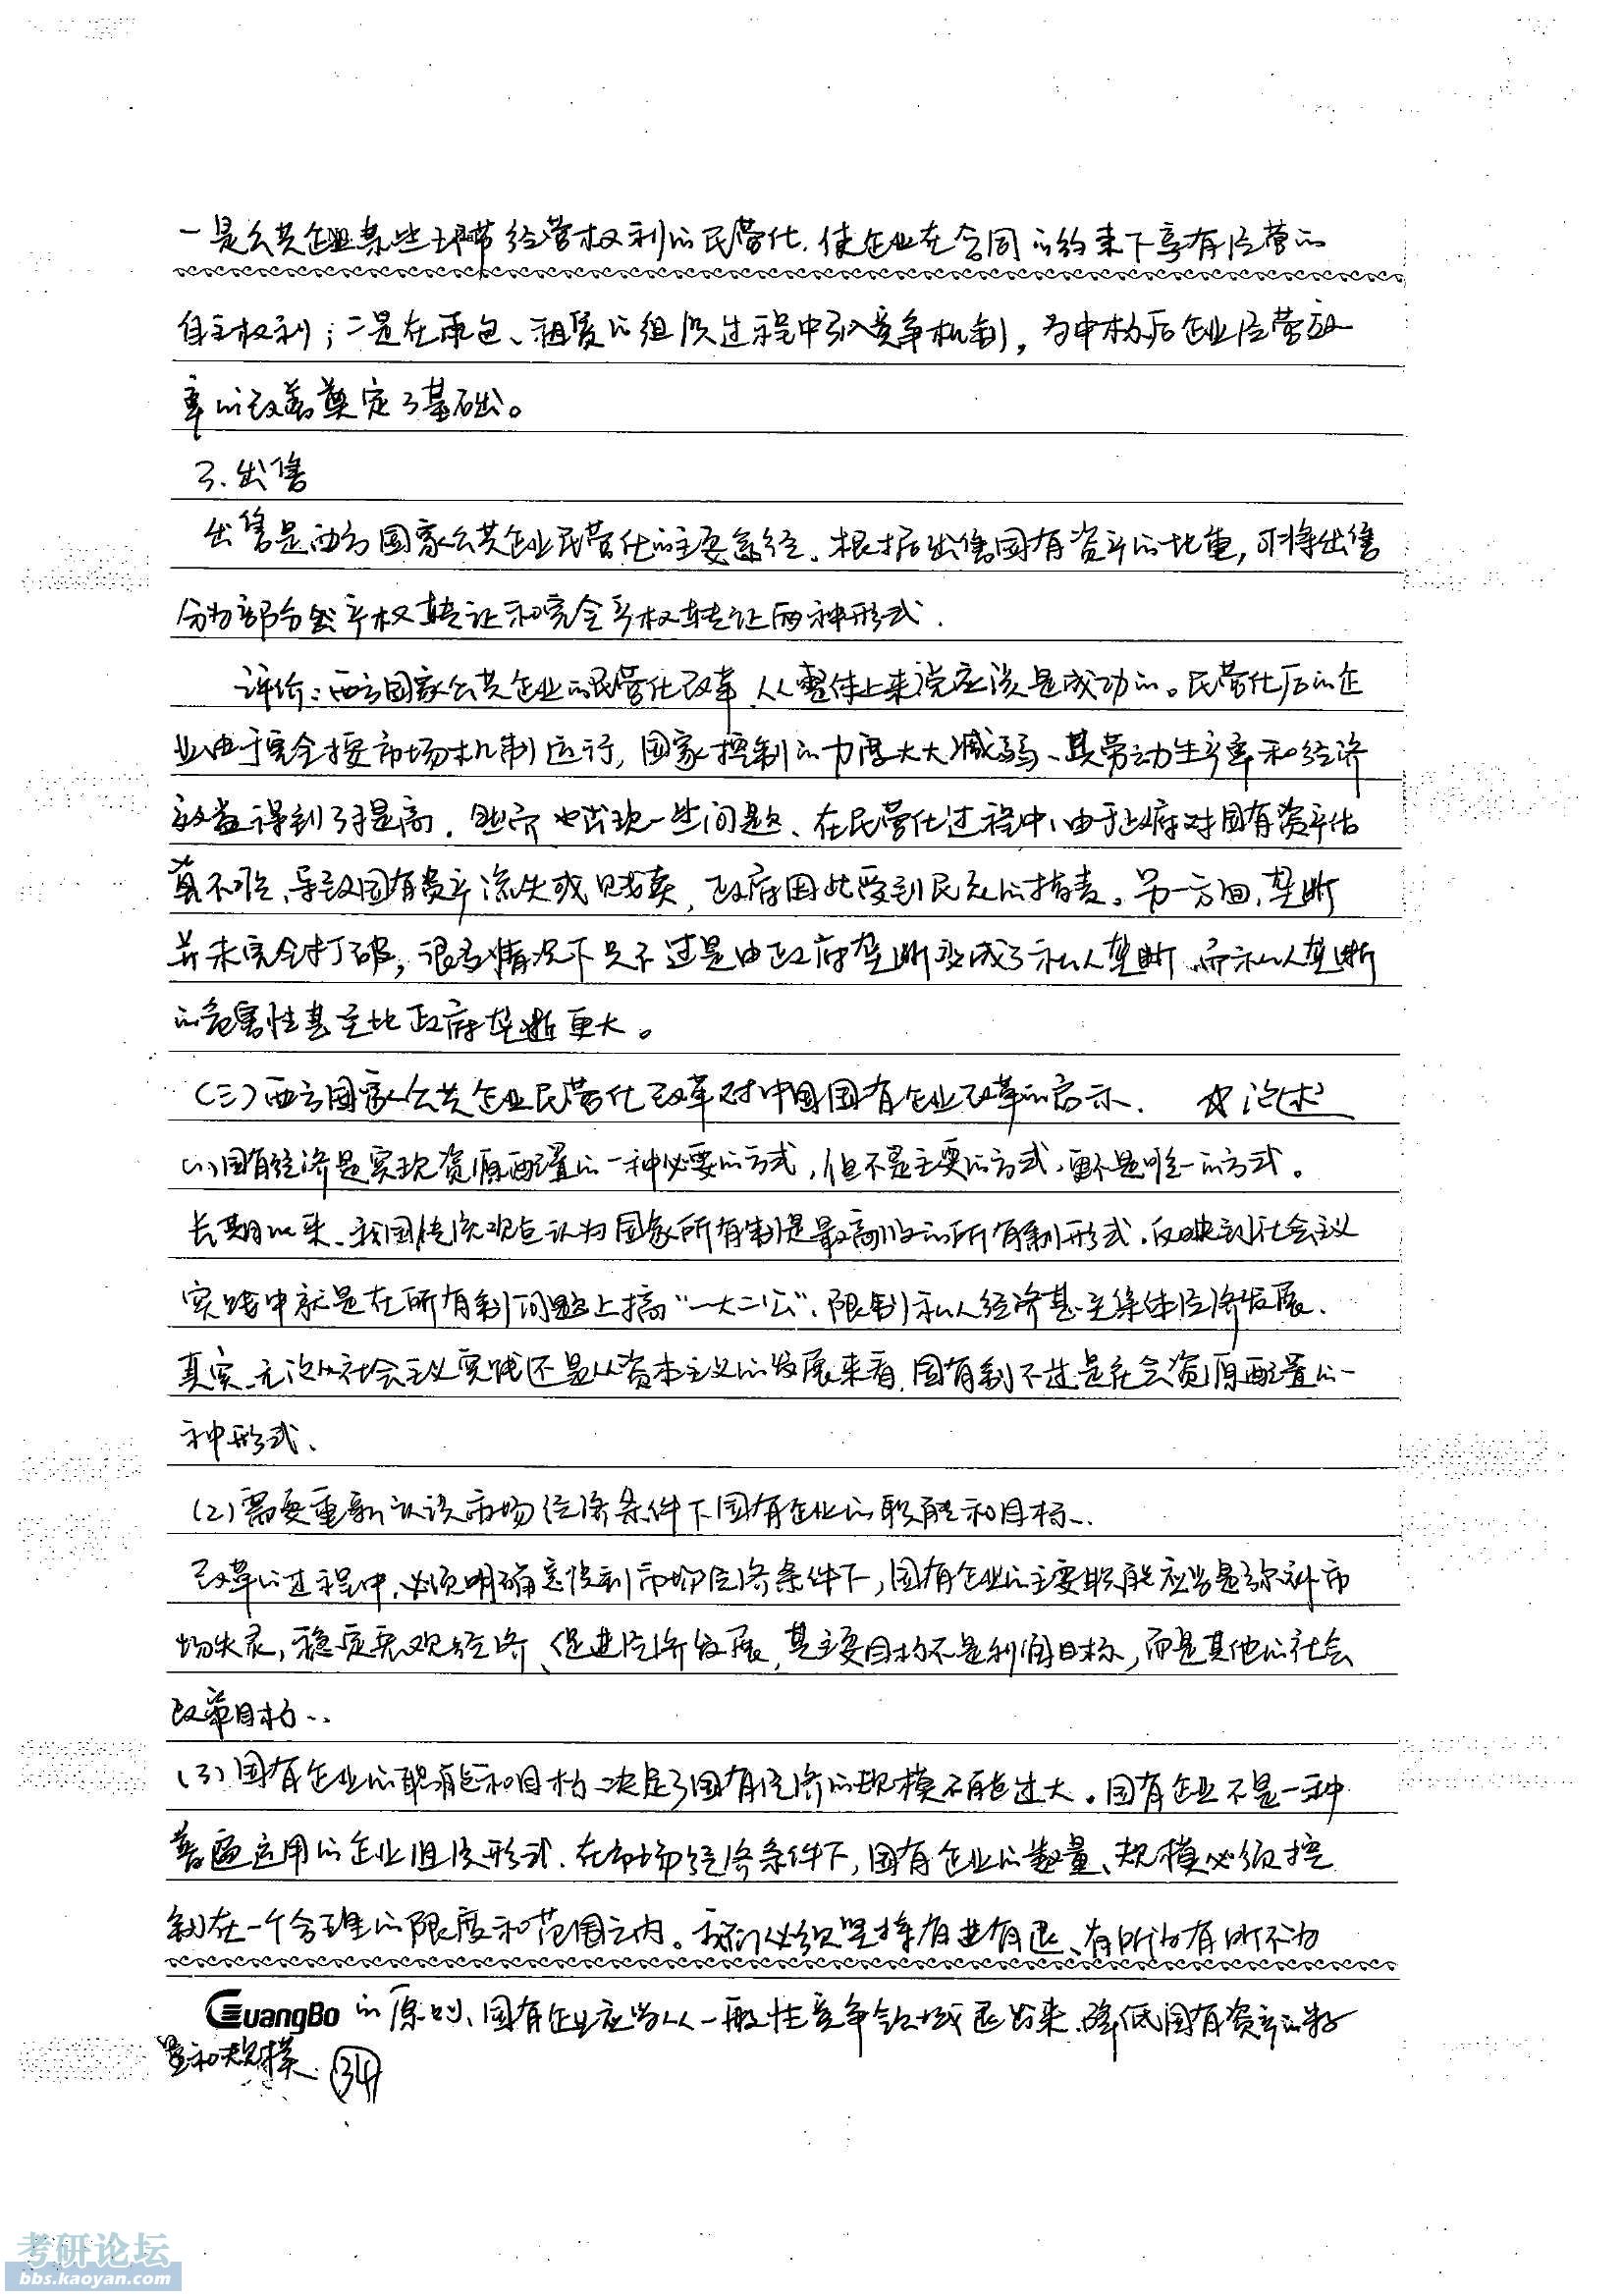 一是公共企业某些环节经营权利的民营化,使企业在合同的约束下享有经营的
自主权利;二是在承包、租赁的组织过程中引入竞争机制,为中标后企业经营效
率的改善奠定了基础。
3.出售
出售是西方国家公共企业民营化的主要途径.根据出售国有资产的比重,可将出售
分为部分产权转让和完全产权转让两种形式.
评价:西方国家公共企业的民营化改革、从整体上来说应该是成功的。民营化后的企
业由于完全按市场机制运行,国家控制的力度大大减弱、其劳动生产率和经济
效益得到了提高.然而也出现一些问题、在民营化过程中、由于政府对国有资产估
算不准、导致国有资产流失或贱卖,政府因此受到民众的指责。另一方面,垄断
并未完全打破,很多情况下只不过是由政府垄断变成了私人垄断、而私人垄断
的危害性甚至比政府垄断更大。
(三)西方国家公共企业民营化改革对中国国有企业改革的启示. ☆论述
(1)国有经济是实现资源配置的一种必要的方式,但不是主要的方式,更不是唯一的方式。
长期以来、我国传统观点认为国家所有制是最高级的所有制形式.反映到社会主义
实践中就是在所有制问题上搞“一大二公”、限制私人经济甚至集体经济发展.
其实、无论从社会主义实践还是从资本主义的发展来看,国有制不过是社会资源配置的一
种形式、
(2)需要重新认识市场经济条件下国有企业的职能和目标..
改革的过程中、必须明确意识到市场经济条件下,国有企业的主要职能应当是弥补市
场失灵,稳定宏观经济、促进经济发展,其主要目标不是利润目标,而是其他的社会
政策目标..
(3)国有企业的职能和目标决定了国有经济的规模不能过大。国有企业不是一种
普遍适用的企业组织形式.在市场经济条件下,国有企业的数量、规模必须控
制在一个合理的限度和范围之内。我们必须坚持有进有退、有所为有所不为
GuangBo 的原则、国有企业应当从一般性竞争领域退出来.降低国有资产的数
量和规模. 34
考研论坛
bbs.kaoyan.com